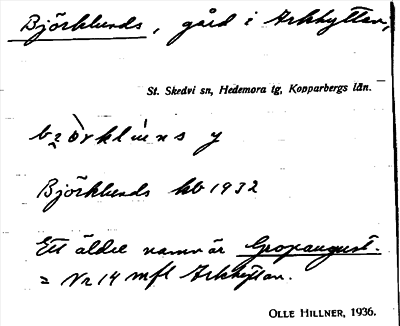 Björklunds, gård i Arkhyttan,
St. Skedvi sn, Hedemora tg, Kopparbergs län.
Björklunds kb 1932
Ett äldre namn är Gropaugust.
= Nr 14 mfl Arkhyttan.
OLLE HILLNER, 1936.